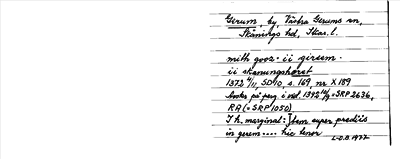 Gerum, by, Västra Gerums sn,
Skånings hd, Skar. l.
mith gooz. ii girem.
ii skanungshæret
1372 6/11, SD10, s. 169, nr X 189
på perg. i vid. 1392 =SRP 2636,
RA (=SRP 1050)
I h. marginal: Item super prædiis
in gerem .... hic tenor
L-O.B. 1977